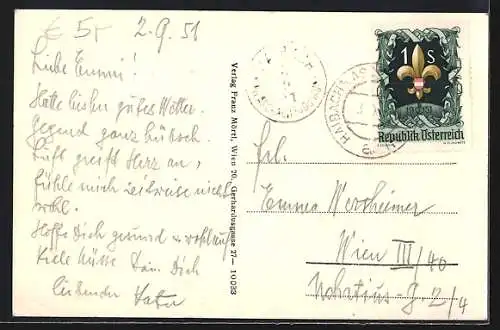 € 5,-
2.9.51
Liebe Emmi!
Hatte bisher gutes Wetter.
Gegend ganz hübsch.
Luft greift Herz an,
fühle mich zeitweise nicht
wohl.
Hoffe Dich gesund u. wohlauf
Viele Küsse Dein Dich
liebender Vater
Verlag Franz Mörtl, Wien 20, Gerhardusgasse 27 — 10033
HAIBACH
1 S
1951
Republik Österreich
Frl.
Emma Wertheimer
Wien III/40
G. 2/4